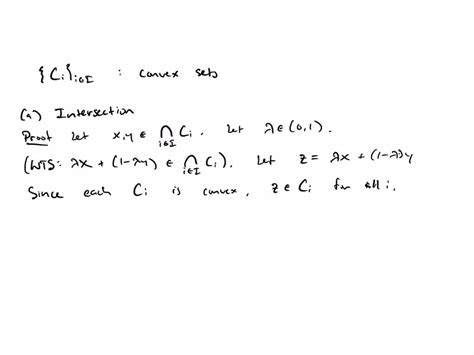 {C_i}_{i∈I} : convex sets
(a) Intersection
Proof Let x,y ∈ ⋂_{i∈I} C_i. Let λ∈(0,1).
(WTS: λx + (1-λy) ∈ ⋂_{i∈I} C_i). Let z = λx + (1-λ)y
Since each C_i is convex, z ∈ C_i for all i.